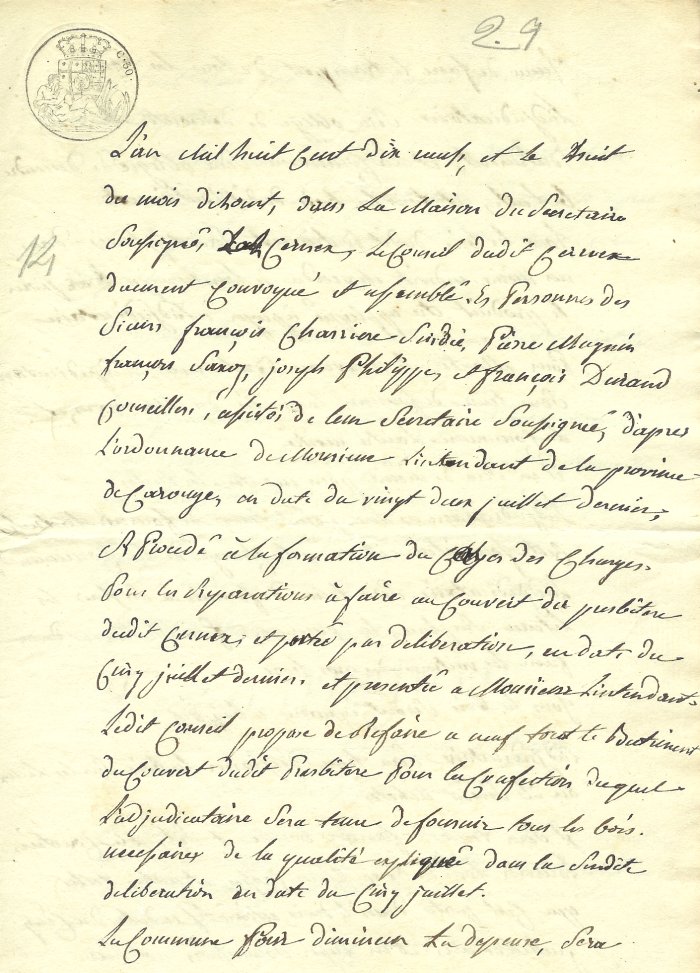 29
C. 30.
L'an Mil huit Cent Dix neuf, et le huit
du mois d'hout, dans La Maison du Secretaire
Soussignés, Cernex, Le Conseil dudit Cernex
duement Convoqué et assemblé Es Personnes des
Sieurs françois Charriere Sindic, Pierre Magnin
françois Saxoz, joseph Philippe, et françois Durand
Conseillers, assistés de leur Secretaire Soussigné, d'apres
L'ordonnance de Monsieur L'intendant de la province
de Carouge, en date du vingt deux juillet dernier,
A Procedé à la formation du Cayer des Charges
Pour les Reparations à faire au Couvert du presbitere
dudit Cernex, et porté par deliberation, en date du
Cinq juillet dernier, et presenté a Monsieur L'intendant
Ledit Conseil propose de Refaire a neuf tout le Batiment
du Couvert dudit Presbitere Pour la Confection duquel
L'adjudicataire Sera tenu de fournir tous les bois
necessaires de la qualité expliqué dans la Sudite
deliberation en date du Cinq juillet.
La Commune Pour diminuer La depense, Sera